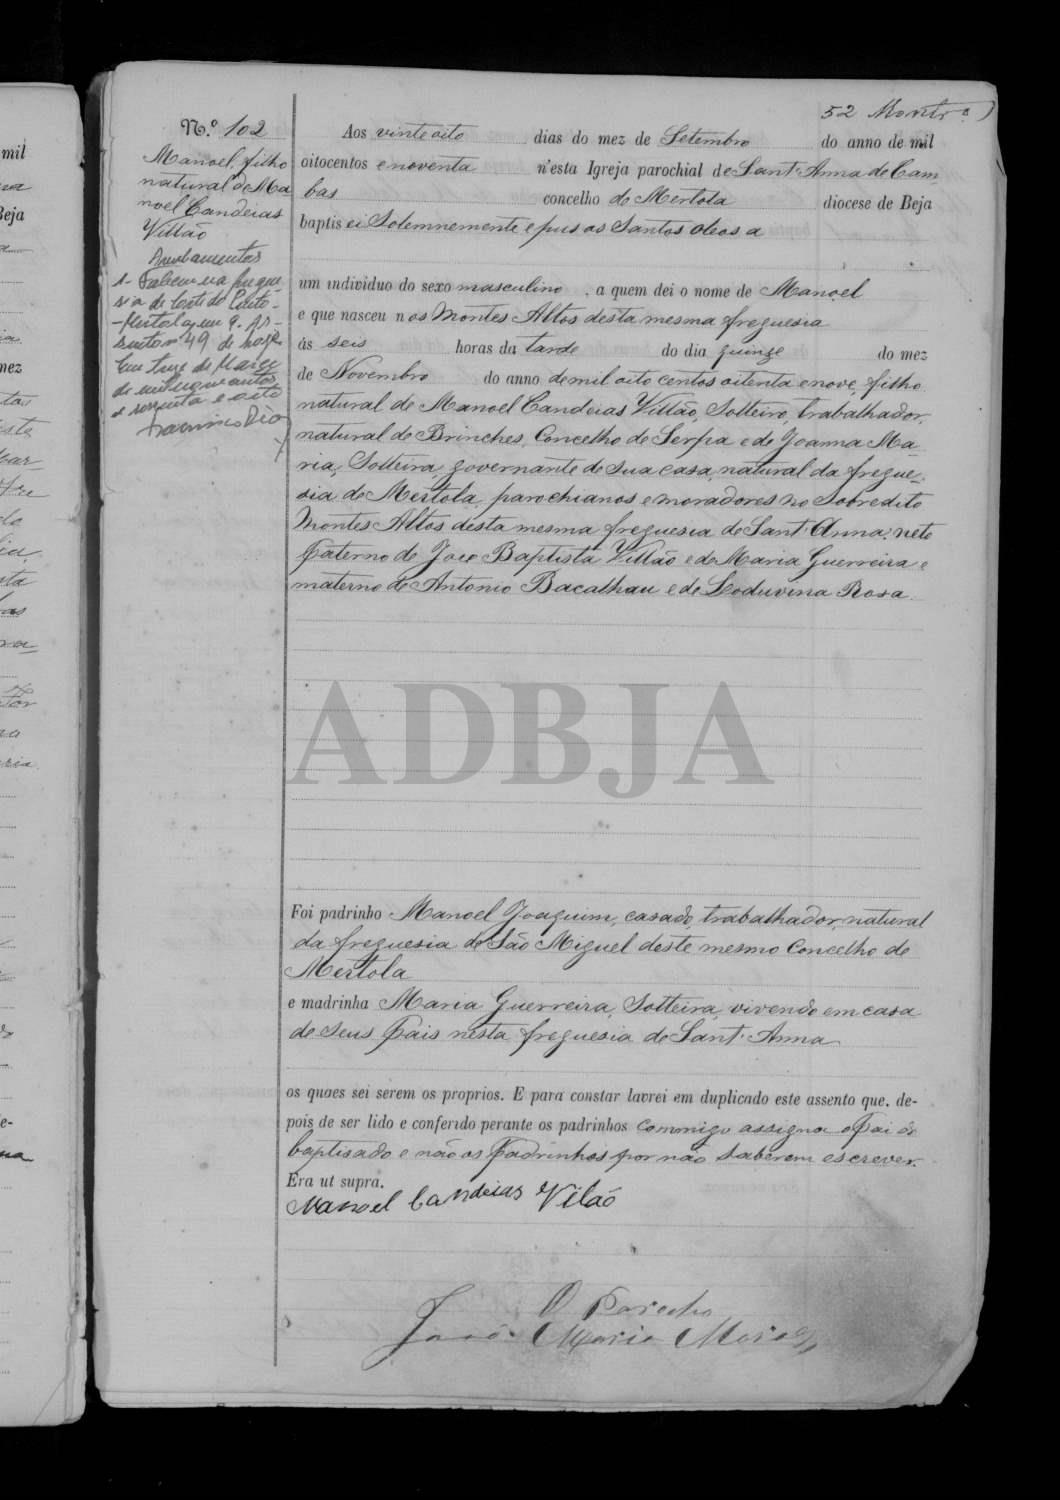 52
N.º 102
Manoel, filho
natural de Ma
noel Candeias
Villão
Averbamentos
1- Faleceu na fregue
sia de Corte do Pinto -
- Mertola em 9. As-
sento nº 49 de hoje
Em treze de Março
de mil novecentos
e sessenta e oito
Aos vinte oito dias do mez de Setembro do anno de mil
oitocentos e noventa n'esta Igreja parochial de Sant'Anna de Cam
bas concelho de Mertola diocese de Beja
baptisei Solemnemente e pus os Santos oleos a
um individuo do sexo masculino, a quem dei o nome de Manoel
e que nasceu nos Montes Altos desta mesma freguesia
ás seis horas da tarde do dia quinze do mez
de Novembro do anno de mil oito centos oitenta e nove, filho
natural de Manoel Candeias Villão, Solteiro, trabalhador,
natural de Brinches, Concelho de Serpa e de Joanna Ma-
ria, Solteira, governante de sua casa, natural da fregue-
sia de Mertola, parochianos e moradores no sobredito
Montes Altos desta mesma freguesia de Sant'Anna; neto
Paterno de João Baptista Villão e de Maria Guerreira e
materno de Antonio Bacalhau e de Leoduvina Rosa.
ADBJA
Foi padrinho Manoel Joaquim, casado, trabalhador, natural
da freguesia de São Miguel deste mesmo Concelho de
Mertola
e madrinha Maria Guerreira, Solteira, vivendo em casa
de Seus Pais nesta freguesia de Sant'Anna
os quaes sei serem os proprios. E para constar lavrei em duplicado este assento que, de-
pois de ser lido e conferido perante os padrinhos commigo assigna o Pai do
baptisado e não os Padrinhos por não saberem escrever.
Era ut supra.
Manoel Candeias Vilão
O Parocho
José Maria